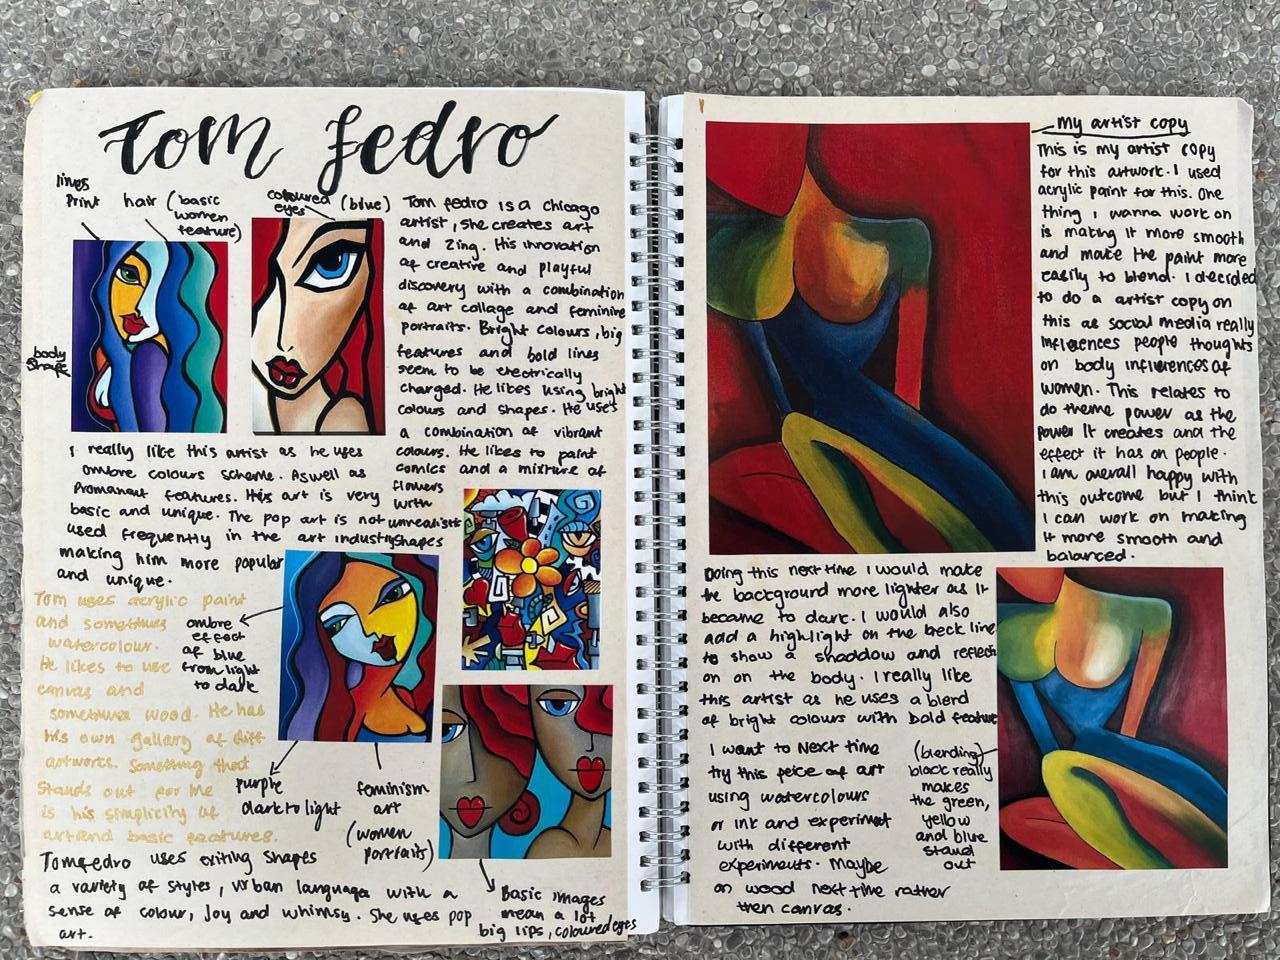 Tom fedro
lines
Print
hair (basic
women
feature)
coloured (blue)
eyes
body
shape
Tom fedro is a chicago
artist, she creates art
and Zing. His innovation
of creative and playful
discovery with a combination
of art collage and feminine
portraits. Bright colours, big
features and bold lines
seem to be electrically
charged. He likes using bright
colours and shapes. He uses
a combination of vibrant
colours. He likes to paint
comics and a mixture of
flowers
with
unrealistic
shapes
I really like this artist as he uses
ombre colours scheme. Aswell as
Promanant features. His art is very
basic and unique. The pop art is not
used frequently in the art industry
making him more popular
and unique.
Tom uses acrylic paint
and sometimes
watercolour.
He likes to use
canvas and
sometimes wood. He has
his own gallery of diff
artworks. Something that
Stands out for me
is his simplicity of
art and basic features.
ombre
effect
of blue
from light
to dark
purple
dark to light
feminism
art
(women
portraits)
Tomfedro uses exiting shapes
a variety of styles, urban language with a
sense of colour, Joy and whimsy. She uses pop
art.
Basic images
mean a lot
big lips, coloured eyes
My artist copy
This is my artist copy
for this artwork. I used
acrylic paint for this. One
thing I wanna work on
is making it more smooth
and make the paint more
easily to blend. I decided
to do a artist copy on
this as social media really
influences people thoughts
on body influences of
women. This relates to
do theme power as the
power it creates and the
effect it has on people.
I am overall happy with
this outcome but I think
I can work on making
it more smooth and
balanced.
Doing this next time I would make
the background more lighter as it
became to dark. I would also
add a highlight on the neck line
to show a shaddow and reflect
on on the body. I really like
this artist as he uses a blend
of bright colours with bold feature
I want to Next time
try this peice of art
using watercolours
or ink and experiment
with different
experiments. Maybe
on wood next time rather
then canvas.
(blending)
black really
makes
the green,
yellow
and blue
stand
out